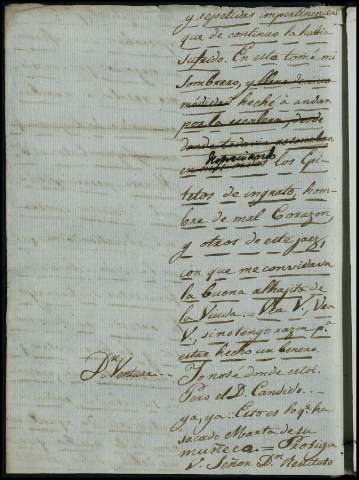 y repetidas impertinencias
que de continuo la habia
sufrido. En esta tomé mi
sombrero, y lleno de
heché à andar
por la escalera, desde
donde todavia
los Epi-
tetos de ingrato, hom-
bre de mal Corazon,
y otros de este jaez,
con que me convidava
la buena alhajita de
la Viuda. Vea V., Vea
V., si no tengo razon pa.
estar hecho un benero.
Dn. Ventura... Io no sé donde estoi.
Pero el D. Candido...
ya, ya: Esto es lo qe. ha
sacado Marta de su
muñeca. = Prosiga
V. Señor Dn. Restituto